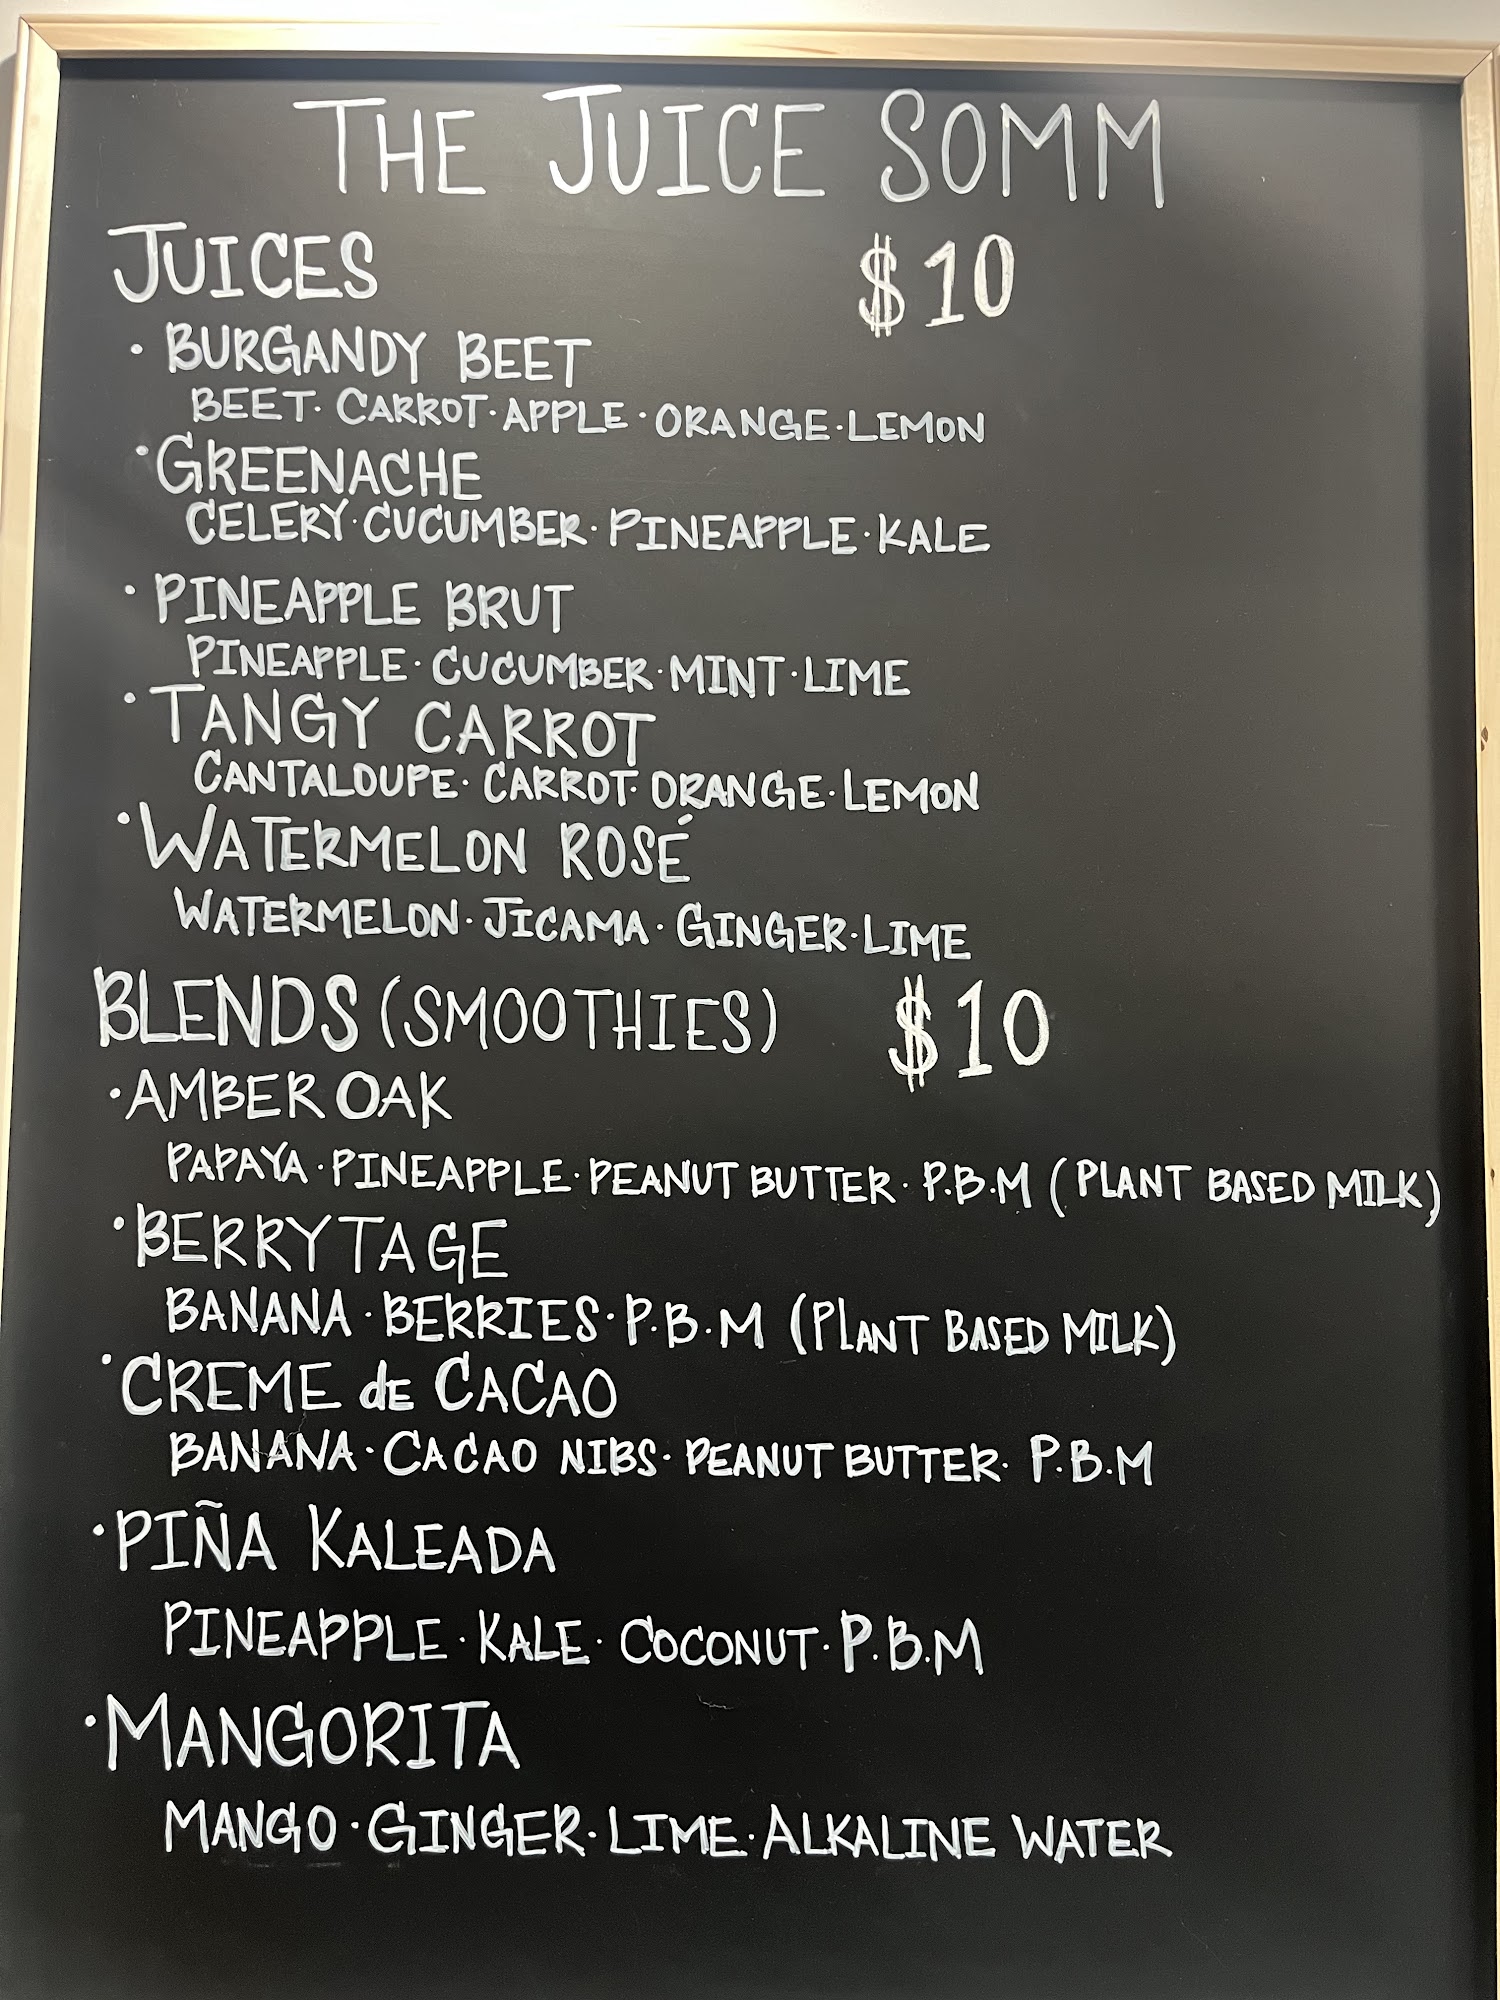 THE JUICE SOMM
JUICES $10
· BURGANDY BEET
BEET · CARROT · APPLE · ORANGE · LEMON
· GREENACHE
CELERY · CUCUMBER · PINEAPPLE · KALE
· PINEAPPLE BRUT
PINEAPPLE · CUCUMBER · MINT · LIME
· TANGY CARROT
CANTALOUPE · CARROT · ORANGE · LEMON
· WATERMELON ROSÉ
WATERMELON · JICAMA · GINGER · LIME
BLENDS (SMOOTHIES) $10
· AMBER OAK
PAPAYA · PINEAPPLE · PEANUT BUTTER · P.B.M (PLANT BASED MILK)
· BERRYTAGE
BANANA · BERRIES · P.B.M (PLANT BASED MILK)
· CREME de CACAO
BANANA · CACAO NIBS · PEANUT BUTTER · P.B.M
· PIÑA KALEADA
PINEAPPLE · KALE · COCONUT · P.B.M
· MANGORITA
MANGO · GINGER · LIME · ALKALINE WATER